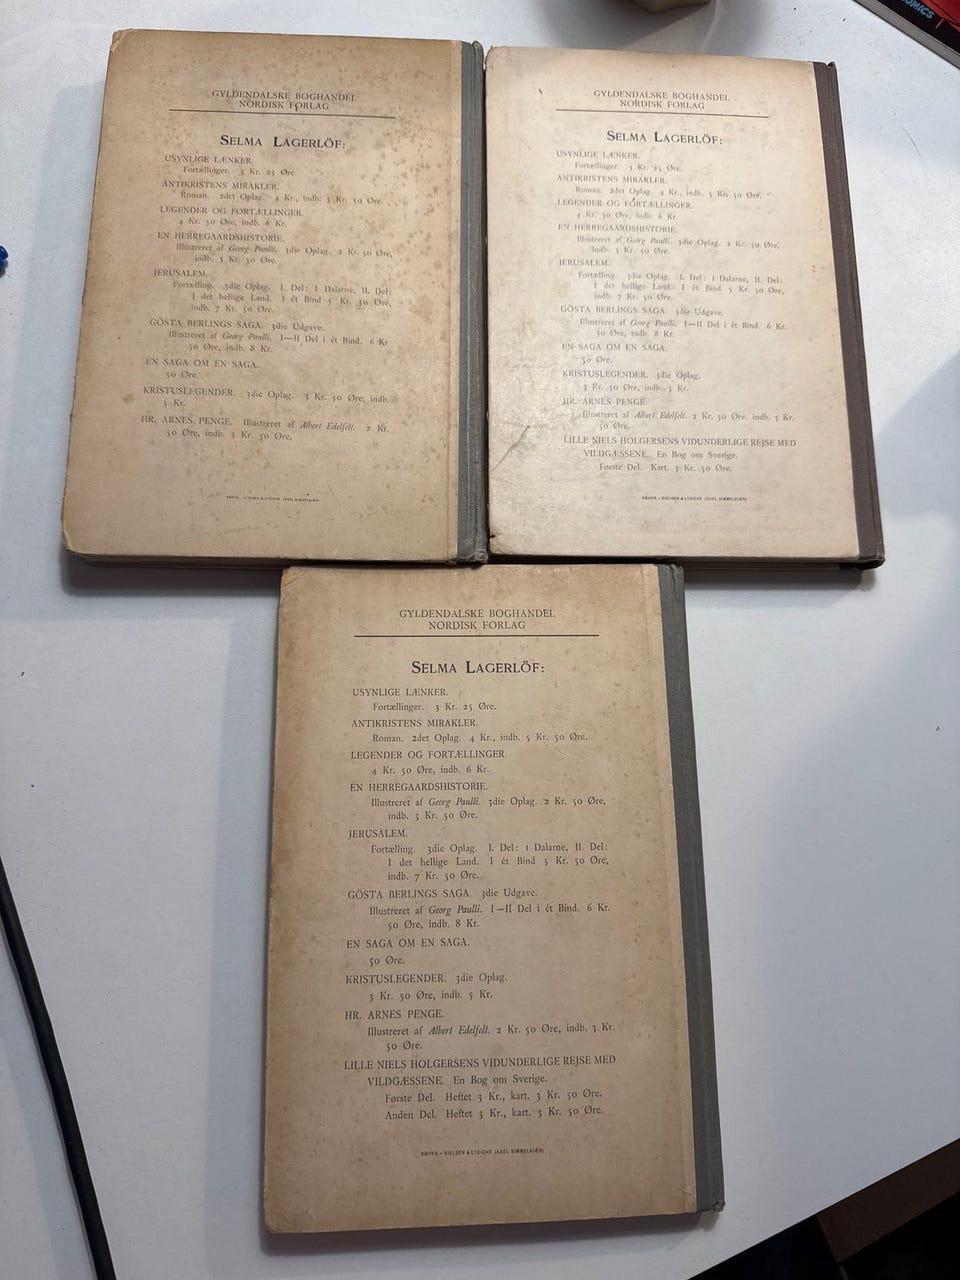 GYLDENDALSKE BOGHANDEL
NORDISK FORLAG
SELMA LAGERLÖF:
USYNLIGE LÆNKER.
Fortællinger. 3 Kr. 25 Øre.
ANTIKRISTENS MIRAKLER.
Roman. 2det Oplag. 4 Kr., indb. 5 Kr. 50 Øre.
LEGENDER OG FORTÆLLINGER.
4 Kr. 50 Øre, indb. 6 Kr.
EN HERREGAARDSHISTORIE.
Illustreret af Georg Paulli. 3die Oplag. 2 Kr. 50 Øre,
indb. 3 Kr. 50 Øre.
JERUSALEM.
Fortælling. 3die Oplag. I. Del: I Dalarne, II. Del:
I det hellige Land. I ét Bind 5 Kr. 50 Øre,
indb. 7 Kr. 50 Øre.
GÖSTA BERLINGS SAGA. 3die Udgave.
Illustreret af Georg Paulli. I—II Del i ét Bind. 6 Kr.
50 Øre, indb. 8 Kr.
EN SAGA OM EN SAGA.
50 Øre.
KRISTUSLEGENDER. 3die Oplag. 3 Kr. 50 Øre, indb.
5 Kr.
HR. ARNES PENGE. Illustreret af Albert Edelfelt. 2 Kr.
50 Øre, indb. 3 Kr. 50 Øre.
KBHVN. – NIELSEN & LYDICHE (AXEL SIMMELKIÆR)
GYLDENDALSKE BOGHANDEL
NORDISK FORLAG
SELMA LAGERLÖF:
USYNLIGE LÆNKER.
Fortællinger. 3 Kr. 25 Øre.
ANTIKRISTENS MIRAKLER.
Roman. 2det Oplag. 4 Kr., indb. 5 Kr. 50 Øre.
LEGENDER OG FORTÆLLINGER.
4 Kr. 50 Øre, indb. 6 Kr.
EN HERREGAARDSHISTORIE.
Illustreret af Georg Paulli. 3die Oplag. 2 Kr. 50 Øre,
indb. 3 Kr. 50 Øre.
JERUSALEM.
Fortælling. 3die Oplag. I. Del: I Dalarne, II. Del:
I det hellige Land. I ét Bind 5 Kr. 50 Øre,
indb. 7 Kr. 50 Øre.
GÖSTA BERLINGS SAGA. 3die Udgave.
Illustreret af Georg Paulli. I—II Del i ét Bind. 6 Kr.
50 Øre, indb. 8 Kr.
EN SAGA OM EN SAGA.
50 Øre.
KRISTUSLEGENDER. 3die Oplag.
3 Kr. 50 Øre, indb. 5 Kr.
HR. ARNES PENGE.
Illustreret af Albert Edelfelt. 2 Kr. 50 Øre. indb. 3 Kr.
50 Øre.
LILLE NIELS HOLGERSENS VIDUNDERLIGE REJSE MED
VILDGÆSSENE. En Bog om Sverige.
Første Del. Kart. 3 Kr. 50 Øre.
KBHVN. – NIELSEN & LYDICHE (AXEL SIMMELKIÆR)
GYLDENDALSKE BOGHANDEL
NORDISK FORLAG
SELMA LAGERLÖF:
USYNLIGE LÆNKER.
Fortællinger. 3 Kr. 25 Øre.
ANTIKRISTENS MIRAKLER.
Roman. 2det Oplag. 4 Kr., indb. 5 Kr. 50 Øre.
LEGENDER OG FORTÆLLINGER.
4 Kr. 50 Øre, indb. 6 Kr.
EN HERREGAARDSHISTORIE.
Illustreret af Georg Paulli. 3die Oplag. 2 Kr. 50 Øre,
indb. 3 Kr. 50 Øre.
JERUSALEM.
Fortælling. 3die Oplag. I. Del: I Dalarne, II. Del:
I det hellige Land. I ét Bind 5 Kr. 50 Øre,
indb. 7 Kr. 50 Øre.
GÖSTA BERLINGS SAGA. 3die Udgave.
Illustreret af Georg Paulli. I—II Del i ét Bind. 6 Kr.
50 Øre, indb. 8 Kr.
EN SAGA OM EN SAGA.
50 Øre.
KRISTUSLEGENDER. 3die Oplag.
3 Kr. 50 Øre, indb. 5 Kr.
HR. ARNES PENGE.
Illustreret af Albert Edelfelt. 2 Kr. 50 Øre, indb. 3 Kr.
50 Øre.
LILLE NIELS HOLGERSENS VIDUNDERLIGE REJSE MED
VILDGÆSSENE. En Bog om Sverige.
Første Del. Heftet 3 Kr., kart. 3 Kr. 50 Øre.
Anden Del. Heftet 3 Kr., kart. 3 Kr. 50 Øre.
KBHVN. – NIELSEN & LYDICHE (AXEL SIMMELKIÆR)
COMICS